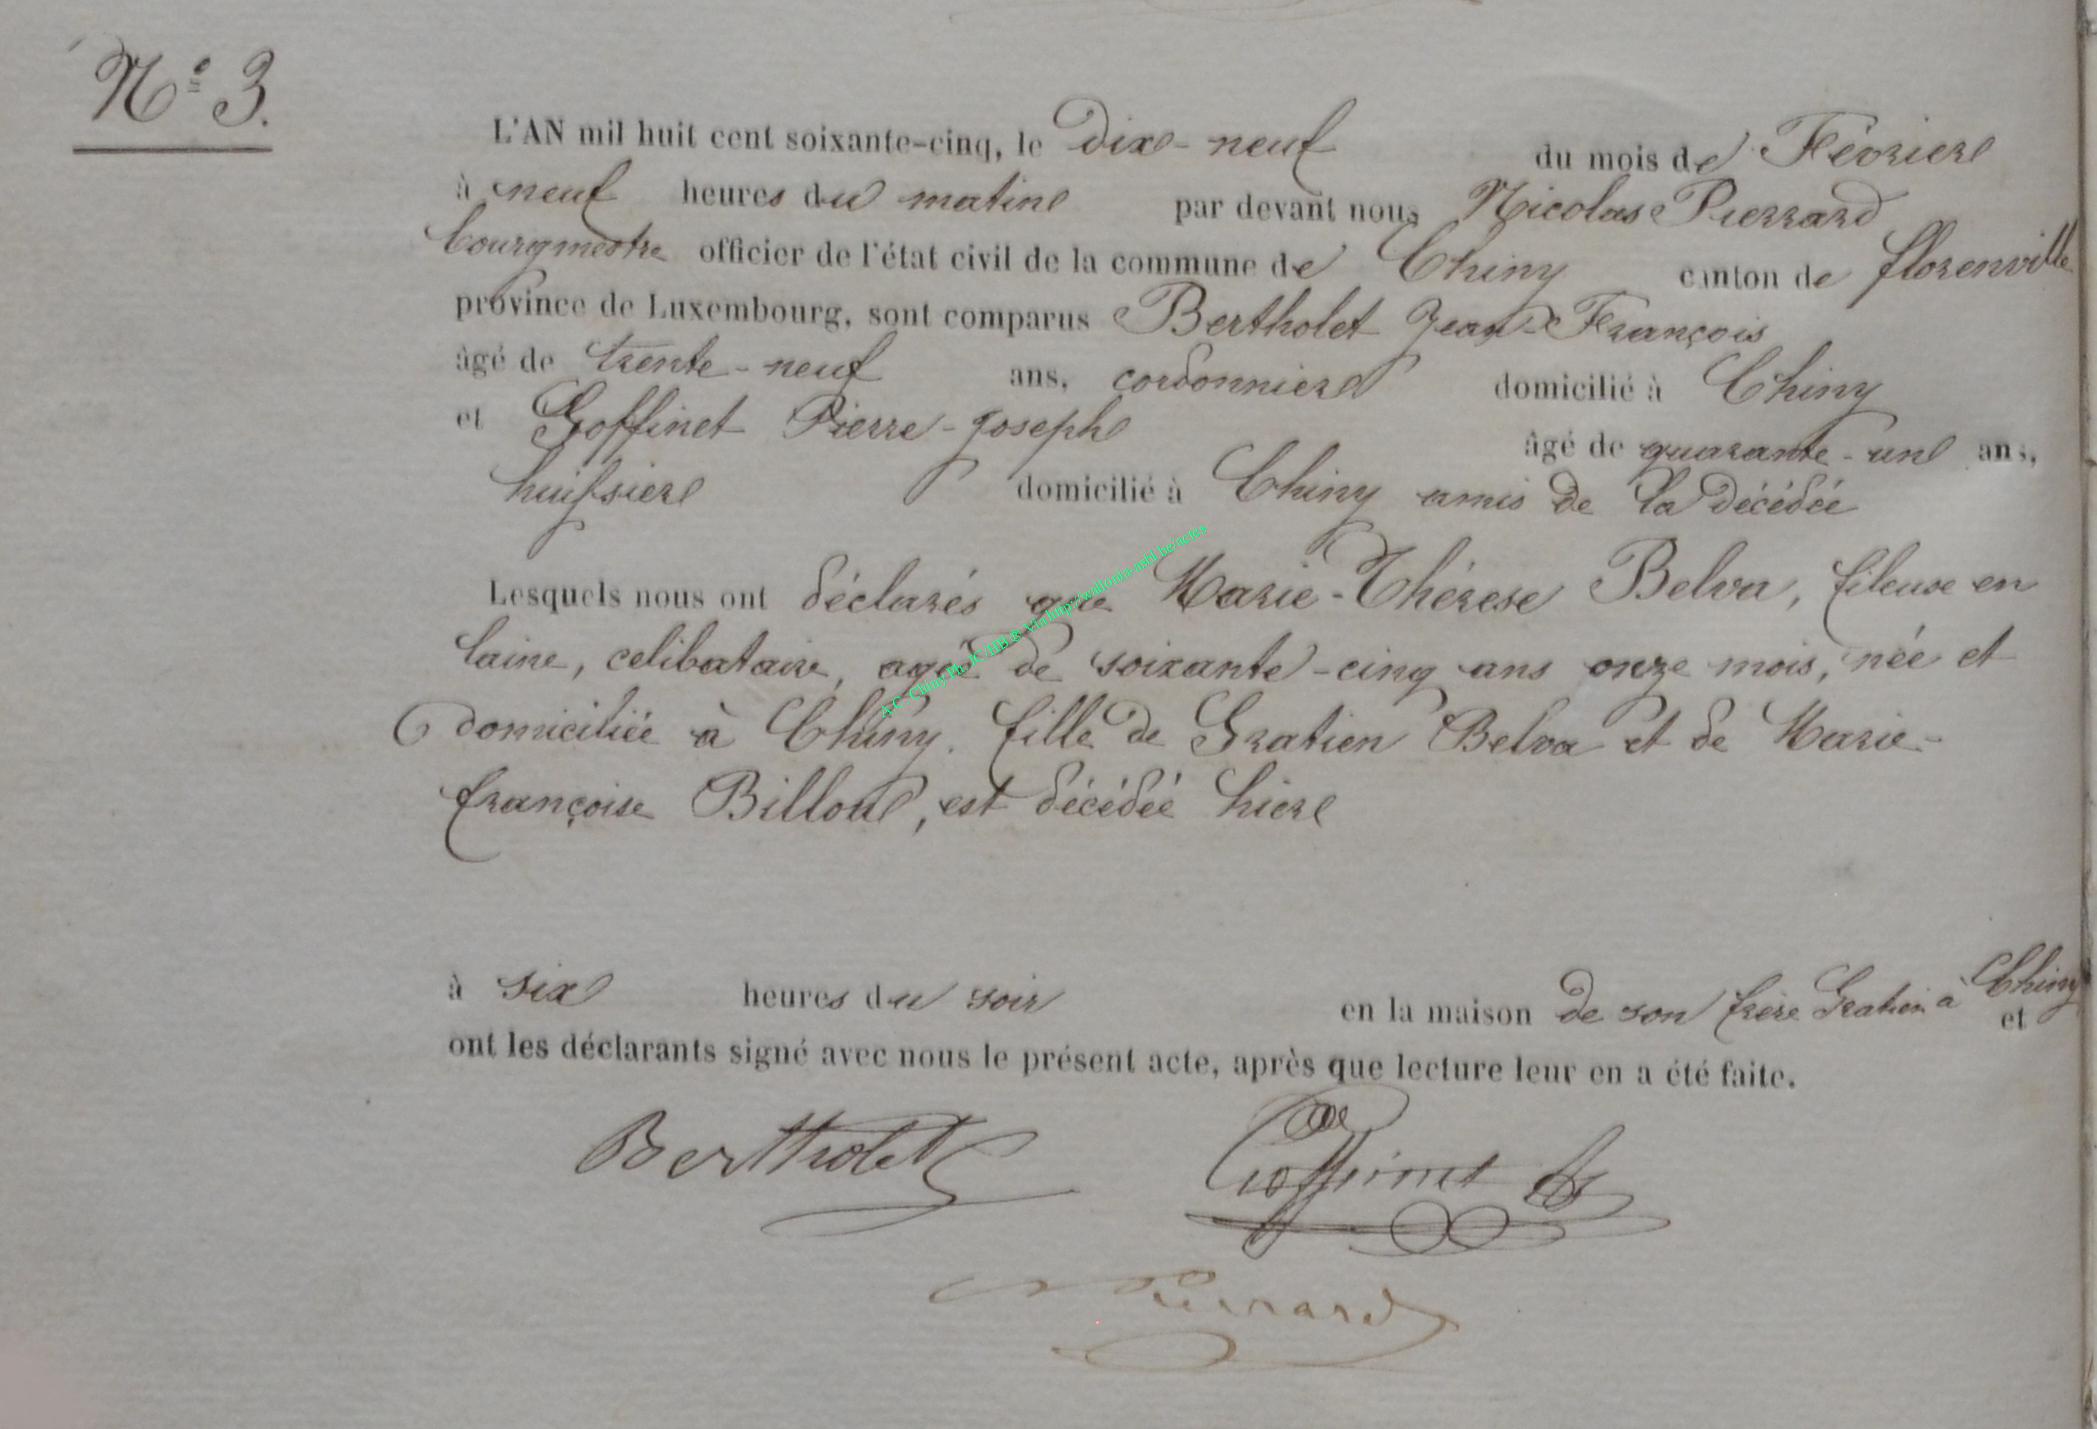 N° 3.
L'AN mil huit cent soixante-cinq, le Dix-neuf du mois de Février
à neuf heures du matin par devant nous Nicolas Pierrard
bourgmestre officier de l'état civil de la commune de Chiny canton de florenville
province de Luxembourg, sont comparus Bertholet Jean-François
âgé de trente-neuf ans, cordonnier domicilié à Chiny
et Goffinet Pierre-Joseph âgé de quarante-un ans,
huissier domicilié à Chiny amis de la décédée
Lesquels nous ont déclarés que Marie-Thérese Belva, fileuse en
laine, celibataire, agée de soixante-cinq ans onze mois, née et
domiciliée à Chiny. fille de Gratien Belva et de Marie-
françoise Billout, est décédée hier
à six heures du soir en la maison de son frère Gratien à Chiny et
ont les déclarants signé avec nous le présent acte, après que lecture leur en a été faite.
Bertholet Goffinet
Pierrard